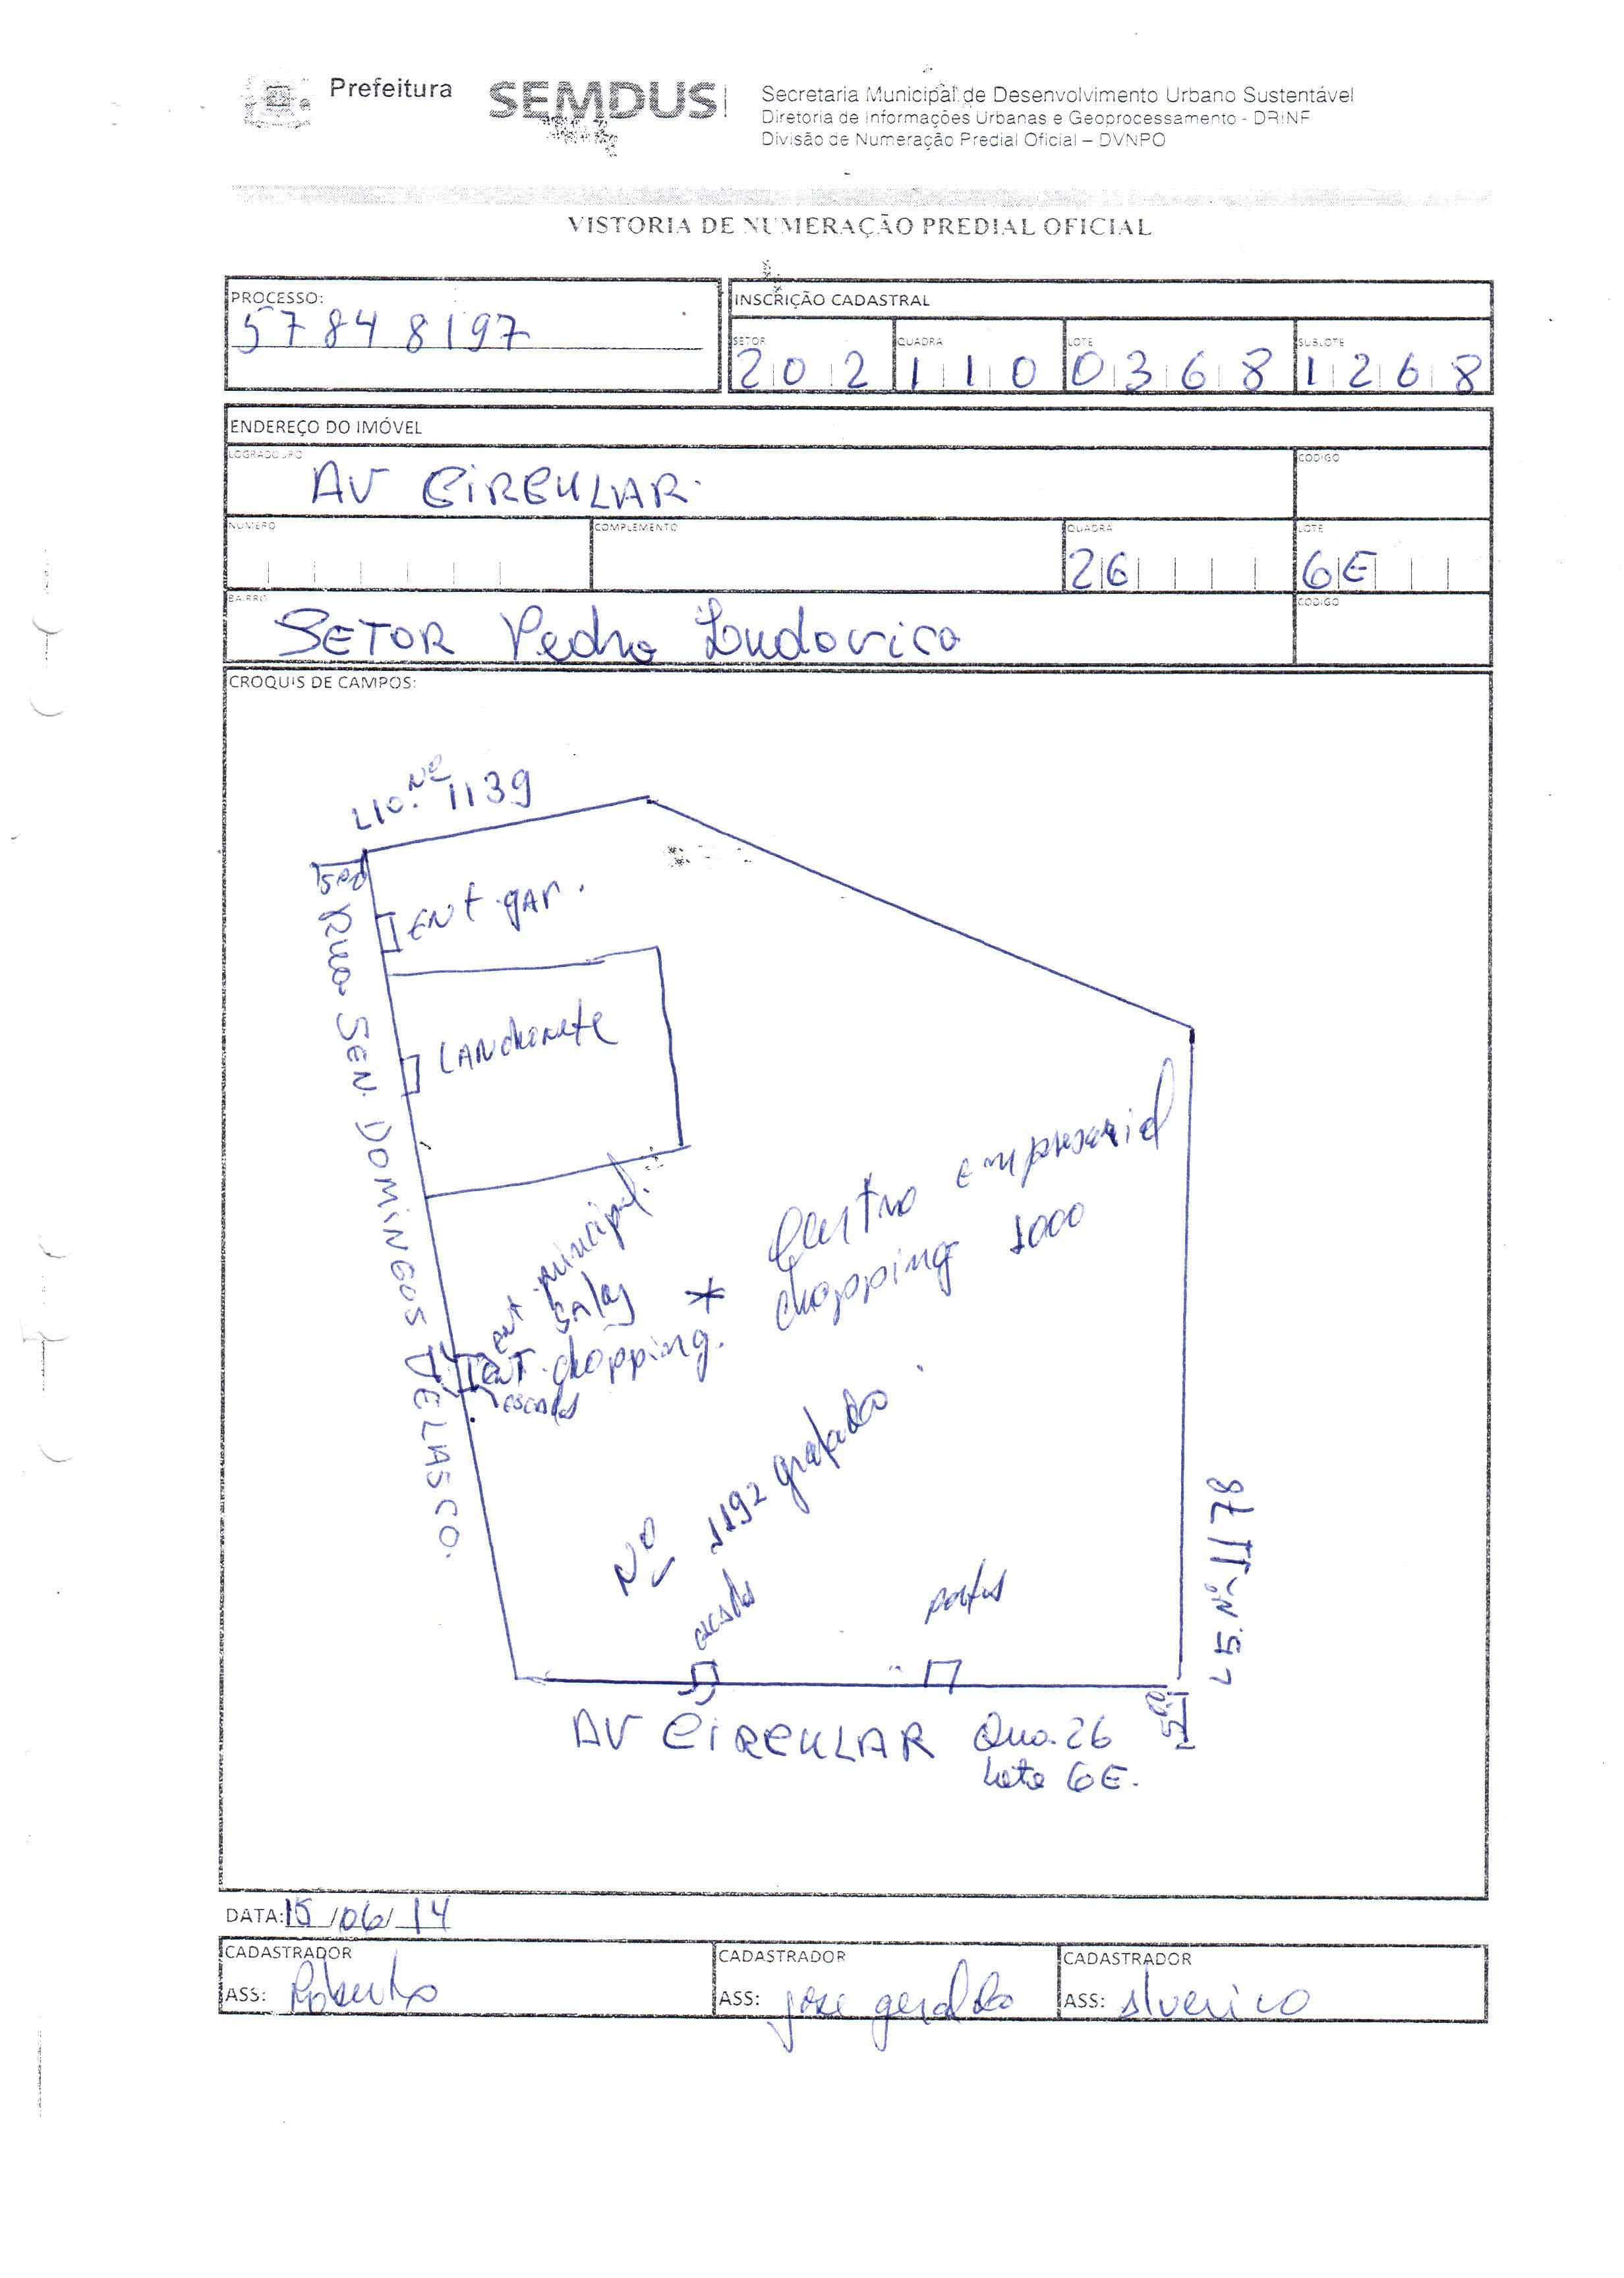 Prefeitura
SEMDUS
Secretaria Municipal de Desenvolvimento Urbano Sustentável
Diretoria de Informações Urbanas e Geoprocessamento - DRINF
Divisão de Numeração Predial Oficial – DVNPO
VISTORIA DE NUMERAÇÃO PREDIAL OFICIAL
PROCESSO:
57848197
INSCRIÇÃO CADASTRAL
SETOR QUADRA LOTE SUBLOTE
202 110 0368 1268
ENDEREÇO DO IMÓVEL
LOGRADOURO CODIGO
AV CIRCULAR.
NUMERO COMPLEMENTO QUADRA LOTE
26 6E
BAIRRO CODIGO
SETOR Pedro Ludovico
CROQUIS DE CAMPOS:
Nº 1139
5,00
ENT. gAr.
Rua SEN. DOMINGOS VELASCO.
LANchonete
ENT. principal.
SAlas
ENT. chopping.
escada
* Centro empresarial
chopping 1000
Nº 1192 grafado.
escada
portas
Nº 1178
5,00
AV CIRCULAR Qua. 26
Lote 6E.
DATA: 15/06/14
CADASTRADOR CADASTRADOR CADASTRADOR
ASS: Roberto ASS: jose geraldo ASS: